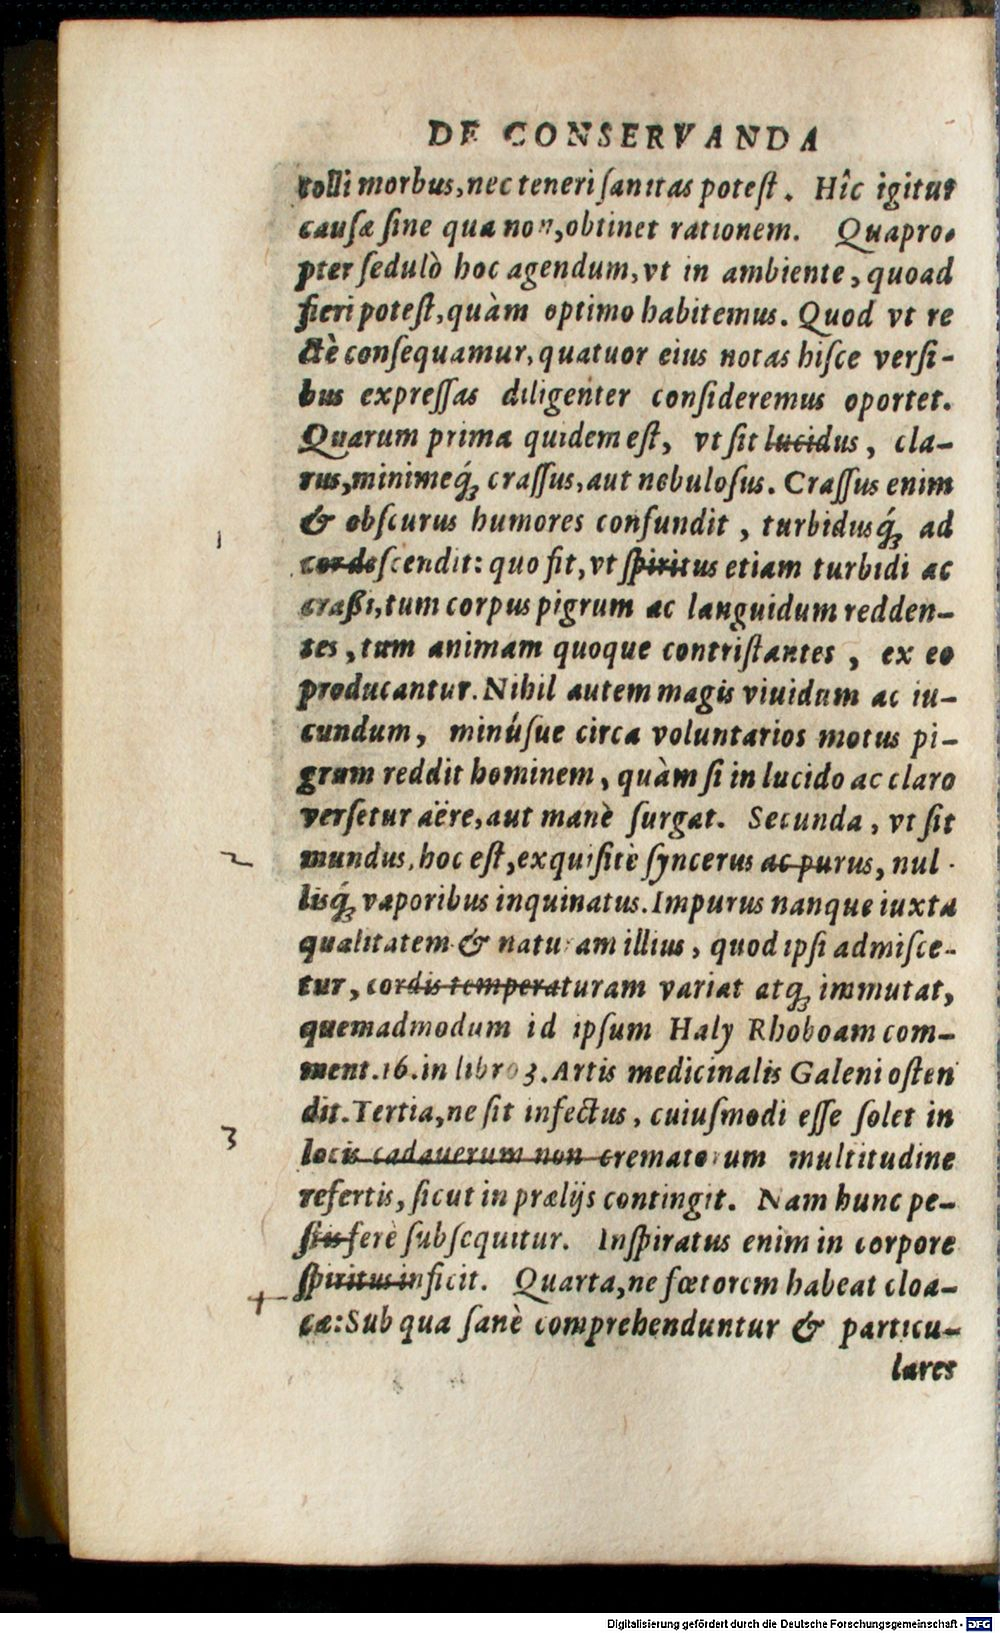 DE CONSERVANDA
tolli morbus, nec teneri ſanitas poteſt. Hîc igitur
cauſæ ſine qua non, obtinet rationem. Quapro-
pter ſedulò hoc agendum, vt in ambiente, quoad
fieri poteſt, quàm optimo habitemus. Quod vt re
ctè conſequamur, quatuor eius notas hiſce verſi-
bus expreſſas diligenter conſideremus oportet.
Quarum prima quidem eſt, vt ſit lucidus, cla-
rus, minimeq́ꝫ craſſus, aut nebuloſus. Craſſus enim
& obſcurus humores confundit, turbidusq́ꝫ ad
1
cor deſcendit: quo fit, vt ſpiritus etiam turbidi ac
craßi, tum corpus pigrum ac languidum redden-
tes, tum animam quoque contriſtantes, ex eo
producantur. Nihil autem magis viuidum ac iu-
cundum, minúſue circa voluntarios motus pi-
grum reddit hominem, quàm ſi in lucido ac claro
verſetur aëre, aut manè ſurgat. Secunda, vt ſit
2
mundus, hoc eſt, exquiſitè ſyncerus ac purus, nul-
lisq́ꝫ vaporibus inquinatus. Impurus nanque iuxta
qualitatem & naturam illius, quod ipſi admiſce-
tur, cordis temperaturam variat atqꝫ immutat,
quemadmodum id ipſum Haly Rhoboam com-
ment. 16. in libro 3. Artis medicinalis Galeni oſten
dit. Tertia, ne ſit infectus, cuiuſmodi eſſe ſolet in
3
locis cadauerum non crematorum multitudine
refertis, ſicut in prælijs contingit. Nam hunc pe-
ſtis ferè ſubſequitur. Inſpiratus enim in corpore
ſpiritus inficit. Quarta, ne fœtorem habeat cloa-
4
cæ: Sub qua ſanè comprehenduntur & particu-
lares
Digitalisierung gefördert durch die Deutsche Forschungsgemeinschaft - DFG